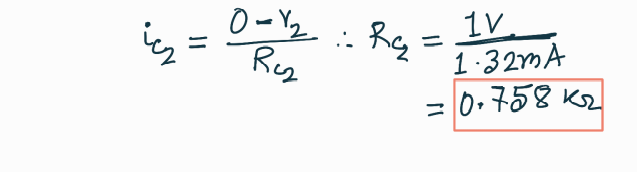 i_{C_2} = \frac{0 - V_2}{R_{C_2}} ∴ R_{C_2} = \frac{1V}{1.32mA}
= 0.758 kΩ